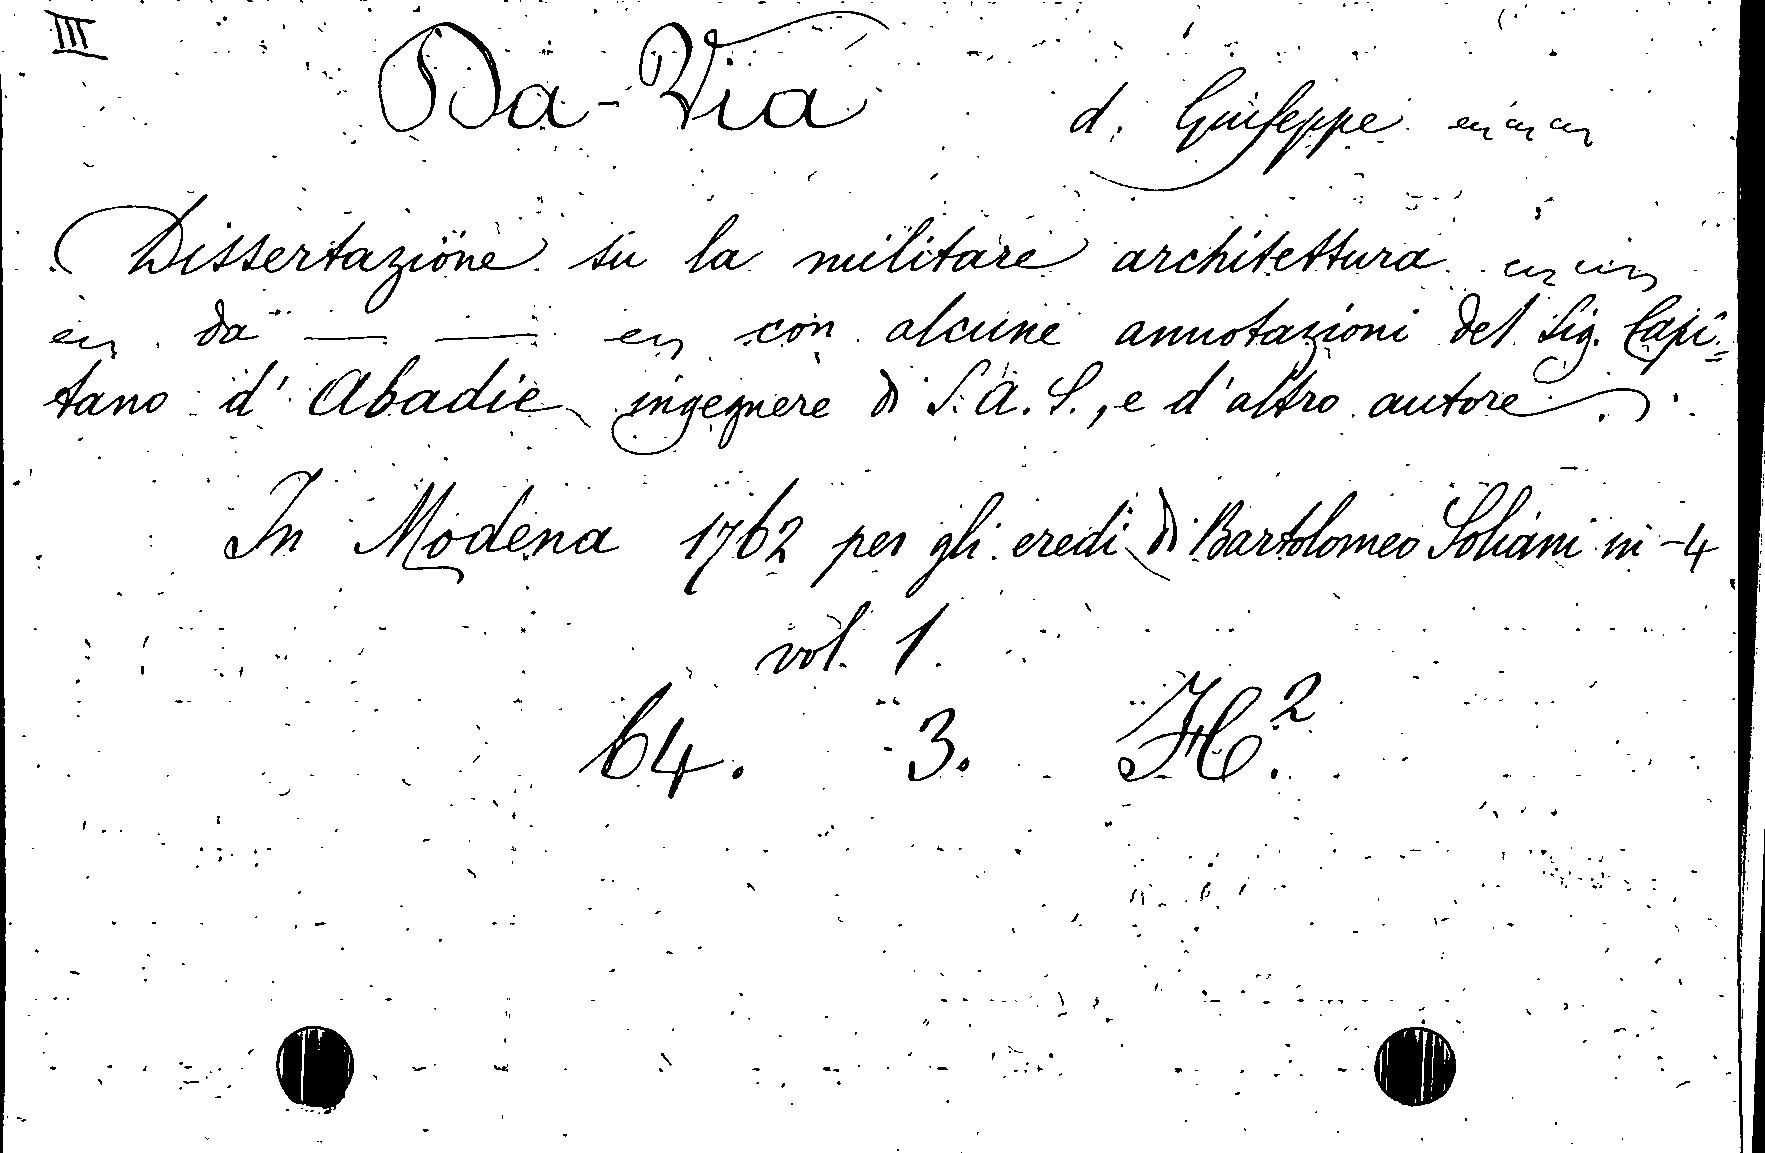 III
Da-Via d. Giuseppe
Dissertazione su la militare architettura
da — — con alcune annotazioni del sig. Capi=
tano d'Abadie ingegnere di S. A. S., e d'altro autore
In Modena 1762 per gli eredi di Bartolomeo Soliani in-4
vol. 1.
64. 3. H².